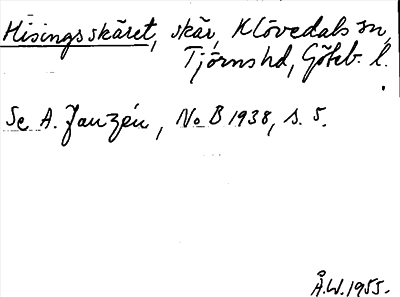 Hisingsskäret, skär, Klövedals sn,
Tjörns hd, Göteb. l.
Se A. Janzén, No B 1938, s. 5.
Å.W. 1955.